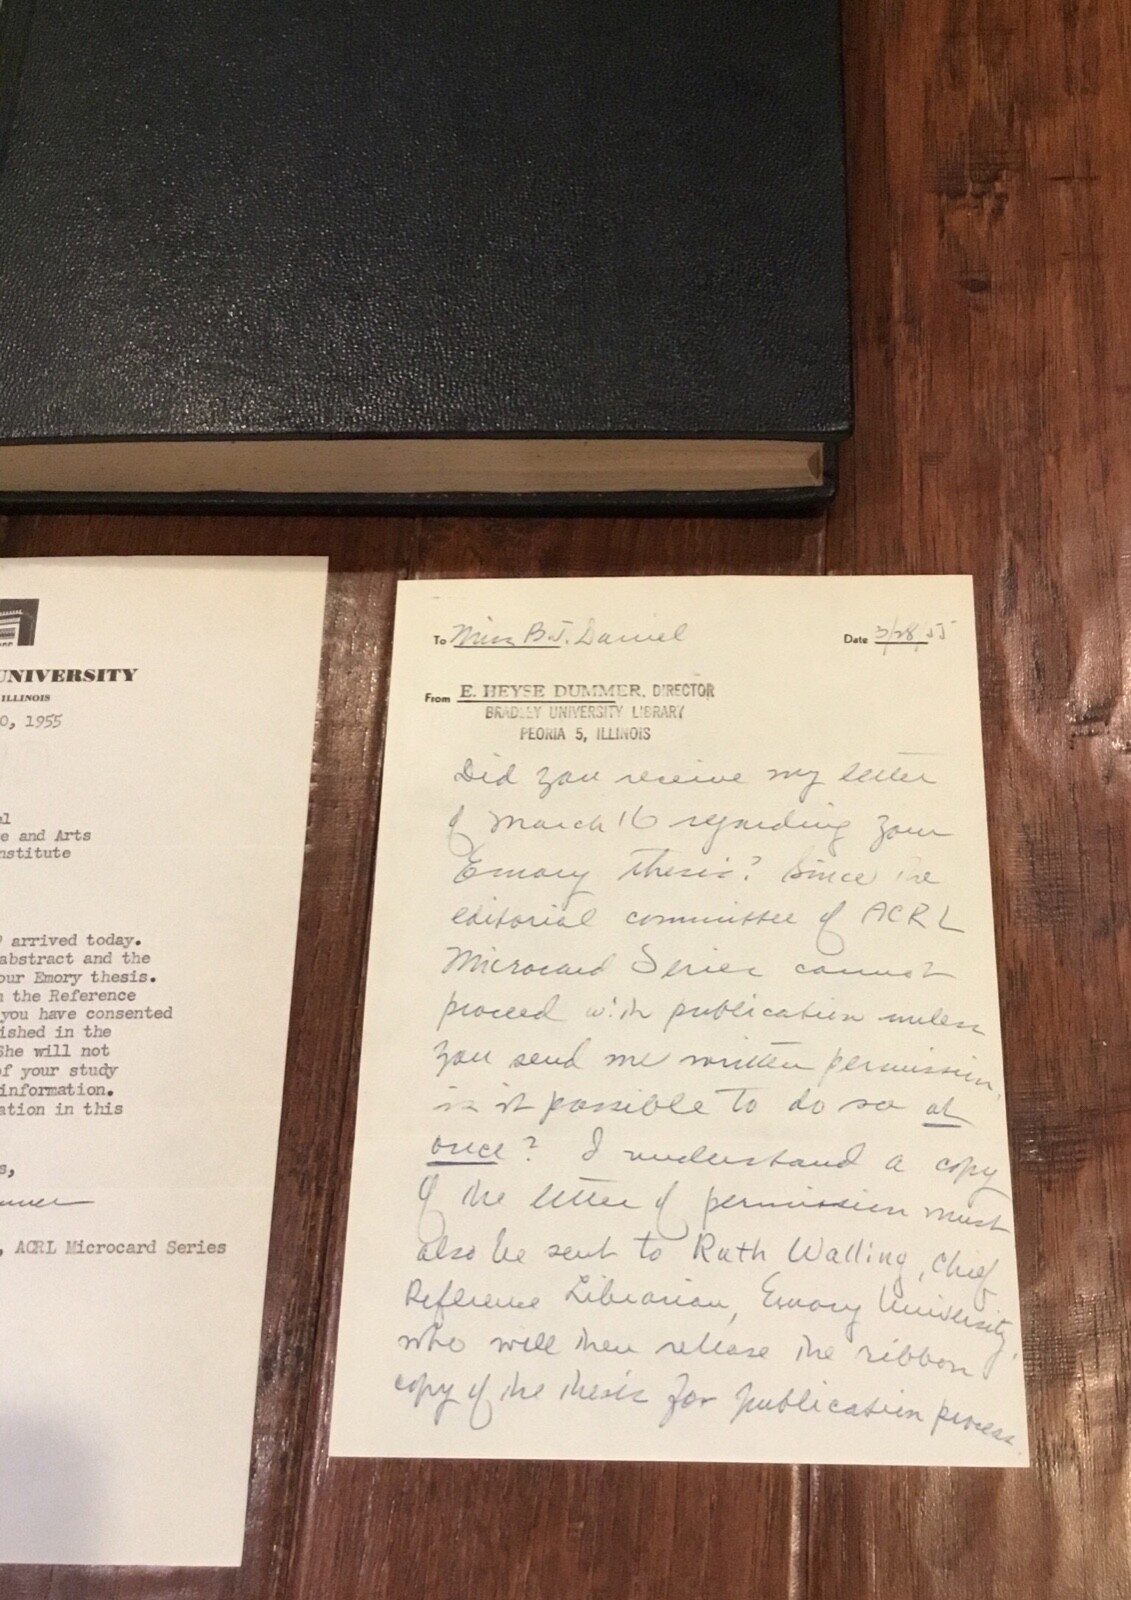 UNIVERSITY
ILLINOIS
0, 1955
el
e and Arts
nstitute
arrived today.
abstract and the
our Emory thesis.
the Reference
you have consented
ished in the
She will not
of your study
information.
ation in this
s,
, ACRL Microcard Series
To Miss B.J. Daniel
Date 3/28/55
From E. HEYSE DUMMER, DIRECTOR
BRADLEY UNIVERSITY LIBRARY
PEORIA 5, ILLINOIS
Did you receive my letter
of March 16 regarding your
Emory thesis? Since the
editorial committee of ACRL
Microcard Series cannot
proceed with publication unless
you send me written permission,
is it possible to do so at
once? I understand a copy
of the letter of permission must
also be sent to Ruth Walling, Chief
Reference Librarian, Emory University,
who will then release the ribbon
copy of the thesis for publication process.